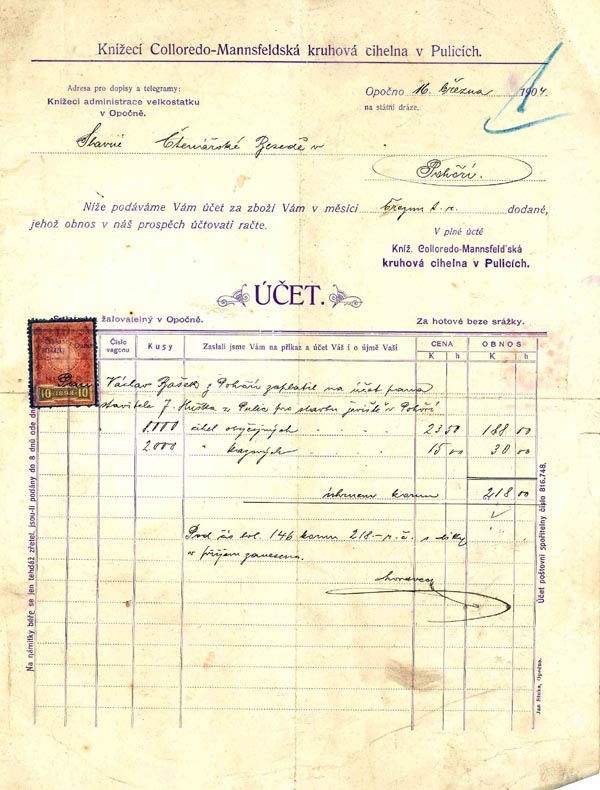 Knížecí Colloredo-Mannsfeldská kruhová cihelna v Pulicích.
Adresa pro dopisy a telegramy:
Knížecí administrace velkostatku
v Opočně.
Opočno 16. března 1904
na státní dráze.
Slavné Čtenářské Besedě v
Pohoří.
Níže podáváme Vám účet za zboží Vám v měsíci březnu t. r. dodané,
jehož obnos v náš prospěch účtovati račte.
V plné úctě
Kníž. Colloredo-Mannsfeld'ská
kruhová cihelna v Pulicích.
ÚČET.
žalovatelný v Opočně.
Za hotové beze srážky.
Číslo vagonu
Kusy
Zaslali jsme Vám na příkaz a účet Váš i o újmě Vaší
CENA
K h
OBNOS
K h
Pan Václav Rašek z Pohoří zaplatil na účet pana
stavitele J. Huška z Pulic pro stavbu jeviště v Pohoří
8.000 cihel obyčejných 23 50 188 00
2000 " 15 00 30 00
úhrnem korun 218 00
Pod čís. bol. 146 korun 218 – r. č. s díky
v příjem zaneseno.
Na námitky béře se jen tehdáž zřetel, jsou-li podány do 8 dnů ode dne
Účet poštovní spořitelny číslo 816.748.
Jan Stuka, Opočno.
10 1898 10